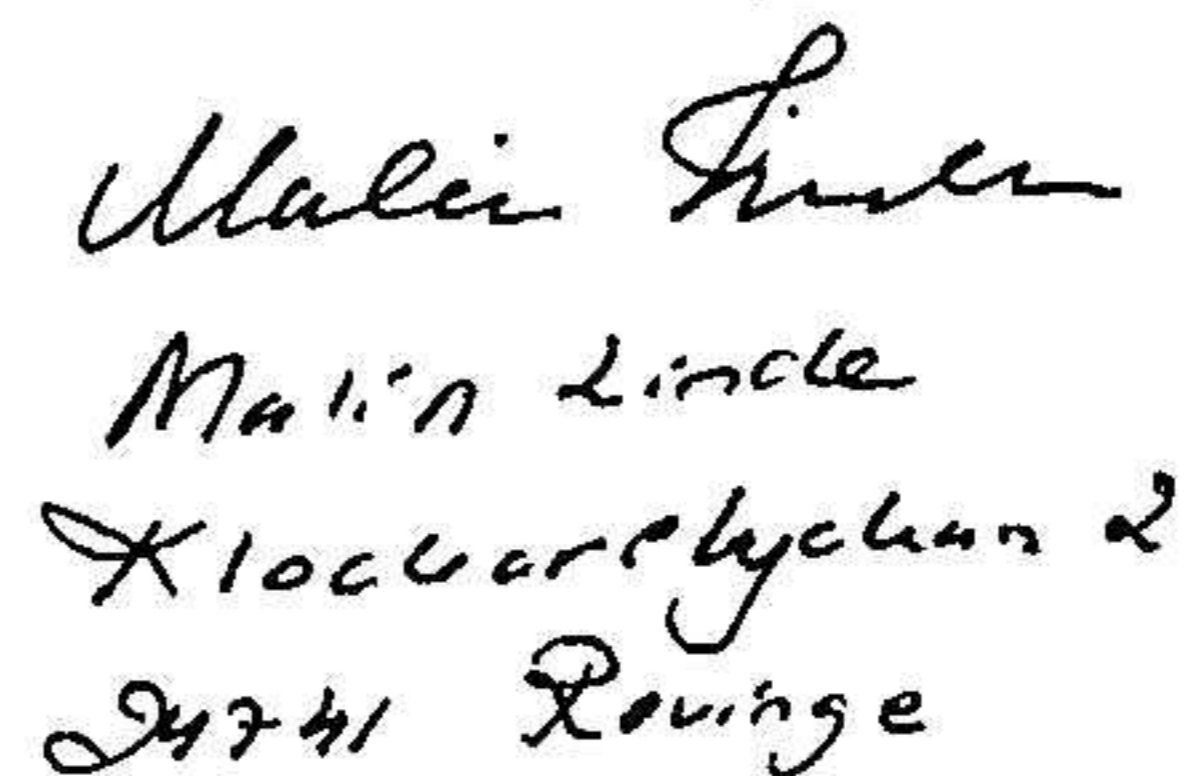 Malin Linde
Malin Linde
Klockarelyckan 2
24741 Revinge